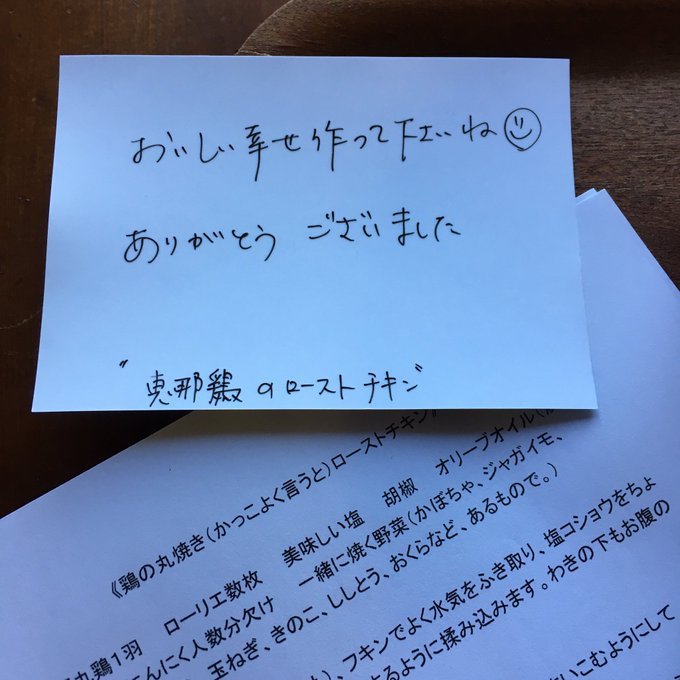 おいしい幸せ作って下さいね
ありがとう ございました
"恵那鶏のローストチキン"
《鶏の丸焼き(かっこよく言うと)ローストチキン》
丸鶏1羽 ローリエ数枚 美味しい塩 胡椒 オリーブオイル(
んにく人数分欠け 一緒に焼く野菜(かぼちゃ、ジャガイモ、
玉ねぎ、きのこ、ししとう、おくらなど、あるもので。)
、フキンでよく水気をふき取り、塩コショウをちょ
るように揉み込みます。わきの下もお腹の
いこむようにして